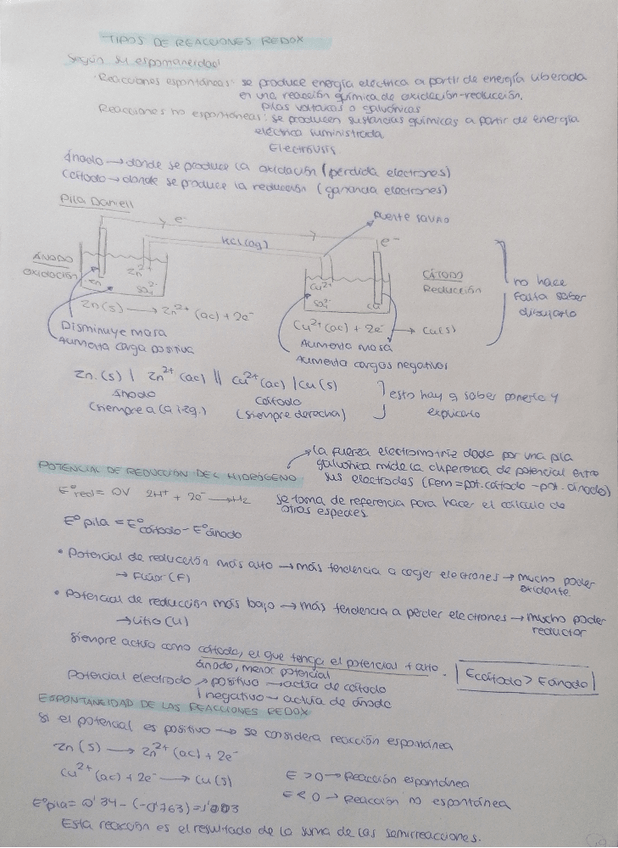 TIPOS DE REACCIONES REDOX
Según su espontaneidad
· Reacciones espontáneas: se produce energía eléctrica a partir de energía liberada
en una reacción química de oxidación-reducción.
Pilas voltaicas o galvánicas
Reacciones no espontáneas: se producen sustancias químicas a partir de energía
eléctrica suministrada
Electrólisis
ánodo → donde se produce la oxidación (pérdida electrones)
Cátodo → donde se produce la reducción (ganancia electrones)
Pila Daniell
e⁻
puente salino
KCl(aq)
e⁻
ÁNODO
OXIDACIÓN
Zn
Zn²⁺
SO₄²⁻
Cu²⁺
SO₄²⁻
Cu
CÁTODO
Reducción
no hace
falta saber
dibujarlo
Zn(s) → Zn²⁺ (ac) + 2e⁻
Cu²⁺(ac) + 2e⁻ → Cu(s)
Disminuye masa
Aumenta carga positiva
Aumenta masa
Aumenta cargas negativas
Zn(s) | Zn²⁺ (ac) || Cu²⁺(ac) | Cu(s)
ánodo
(siempre a la izq.)
cátodo
(siempre derecha)
esto hay q saber ponerlo y
explicarlo
POTENCIAL DE REDUCCIÓN DEL HIDRÓGENO
la fuerza electromotriz dada por una pila
galvánica mide la diferencia de potencial entre
sus electrodos (fem = pot.cátodo - pot. ánodo)
E°red = 0V 2H⁺ + 2e⁻ → H₂
se toma de referencia para hacer el cálculo de
otras especies.
E° pila = E°cátodo - E°ánodo
• Potencial de reducción más alto → más tendencia a coger electrones → mucho poder
oxidante
→ Flúor (F)
• Potencial de reducción más bajo → más tendencia a perder electrones → mucho poder
reductor
→ Litio (Li)
Siempre actúa como cátodo, el que tenga el potencial + alto.
ánodo, menor potencial
Ecátodo > Eánodo
Potencial electrodo → positivo → actúa de cátodo
negativo → actúa de ánodo
ESPONTANEIDAD DE LAS REACCIONES REDOX
Si el potencial es positivo → se considera reacción espontánea
Zn (s) → Zn²⁺(ac) + 2e⁻
Cu²⁺ (ac) + 2e⁻ → Cu (s)
E > 0 → Reacción espontánea
E < 0 → Reacción no espontánea
E°pila = 0'34 - (-0'763) = 1'003
Esta reacción es el resultado de la suma de las semirreacciones.